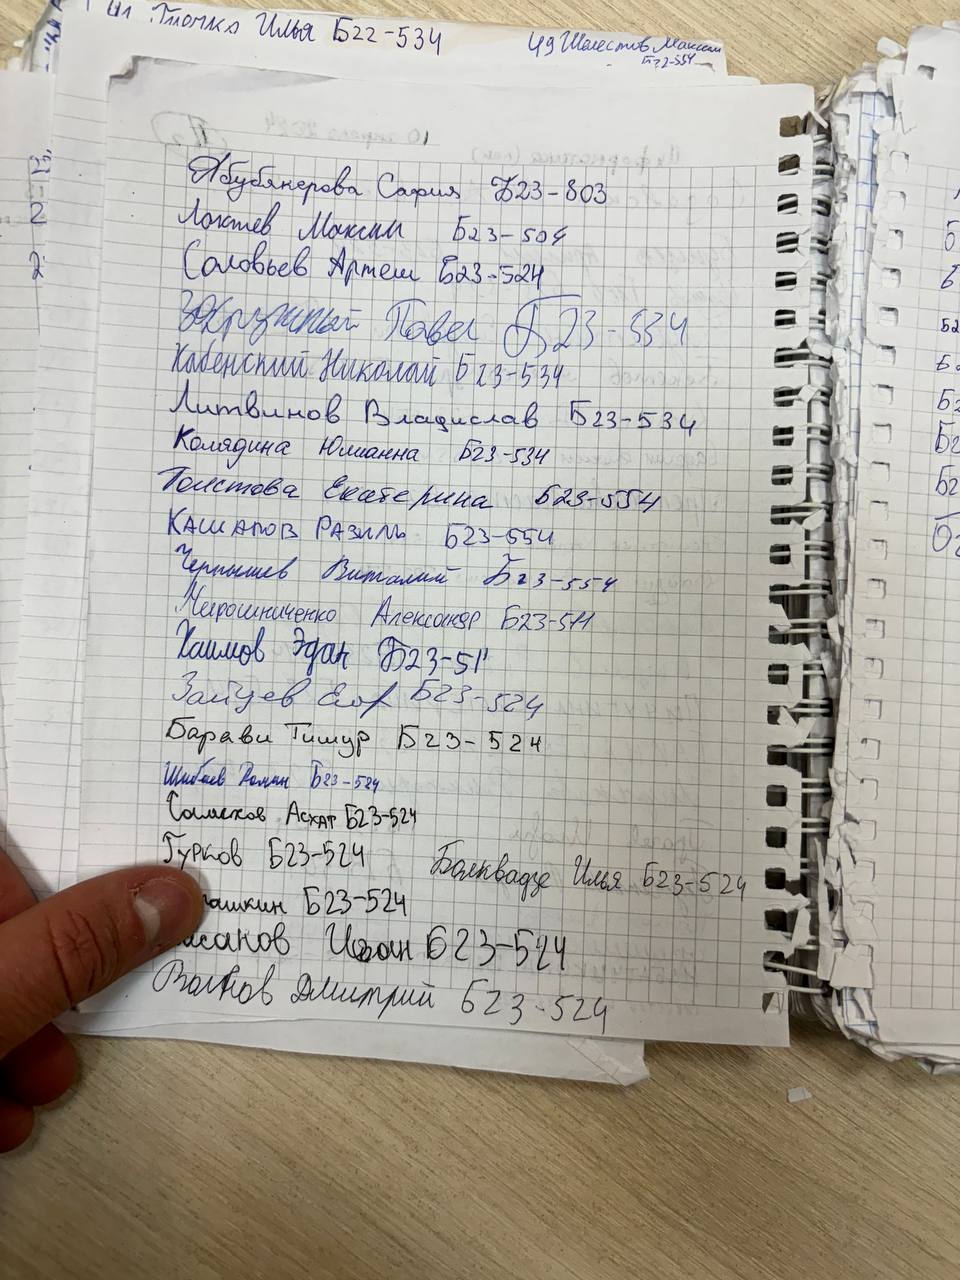 Илья Б22-534
49 Шелестов Максим
Б22-554
Абубякерова Сафия Б23-803
Локтев Максим Б23-504
Соловьев Артем Б23-524
Закружный Павел Б23-534
Хабенский Николай Б23-534
Литвинов Владислав Б23-534
Колядина Юлианна Б23-534
Толстова Екатерина Б23-554
Кашапов Разиль Б23-554
Чернышев Виталий Б23-554
Мирошниченко Александр Б23-511
Хаимов Эдан Б23-511
Зайцев Егор Б23-524
Барави Тимур Б23-524
Шибаев Роман Б23-524
Асхат Б23-524
Гурков Б23-524 Болквадзе Илья Б23-524
Б23-524
Б23-524
Волков Дмитрий Б23-524